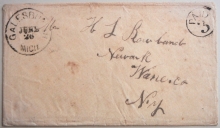 GALESBURG
JUN
20
MICH
PAID
3
H L Rowland
Newark
Wayne co
N.Y